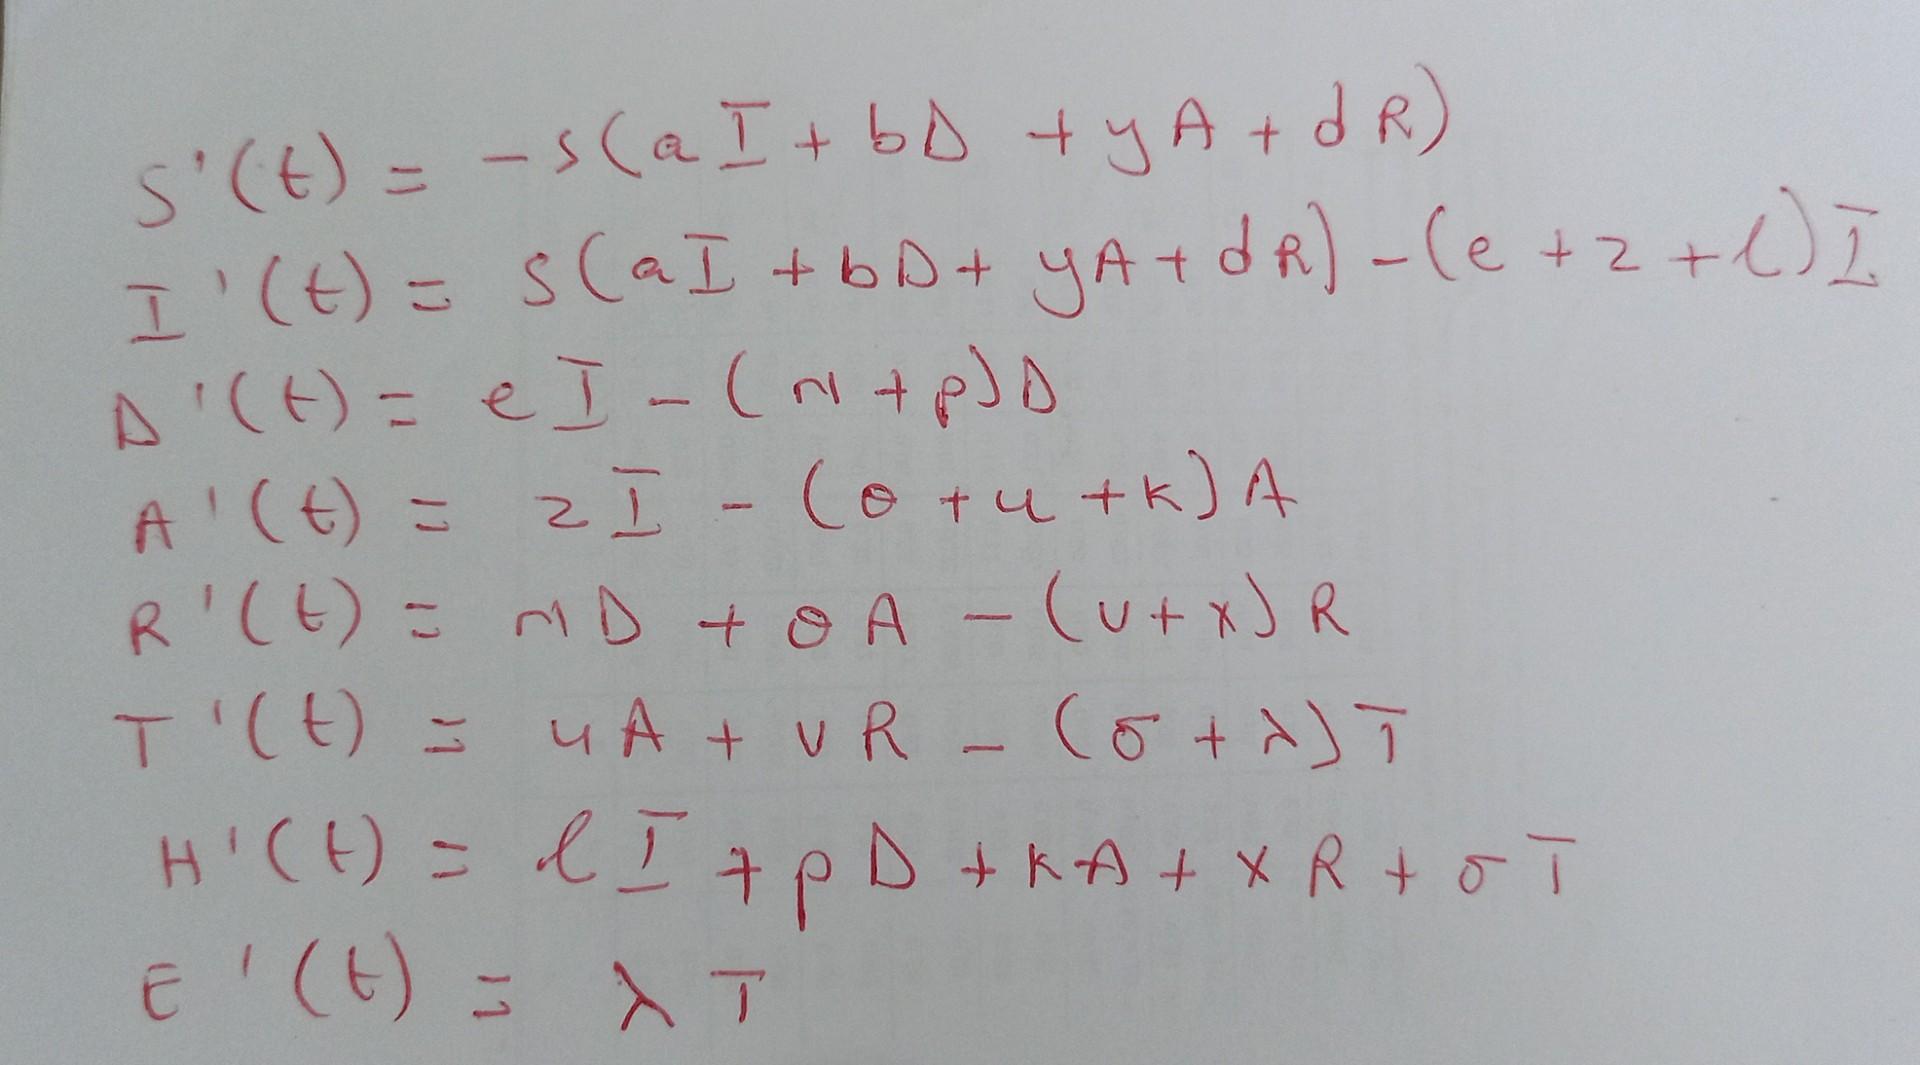 S'(t) = -s(aI + bD + yA + dR)
I'(t) = S(aI + bD + yA + dR) - (e + z + l)I
D'(t) = eI - (n + p)D
A'(t) = zI - (θ + u + k)A
R'(t) = nD + θA - (v + x)R
T'(t) = uA + vR - (σ + λ)T
H'(t) = lI + pD + kA + xR + σT
E'(t) = λT